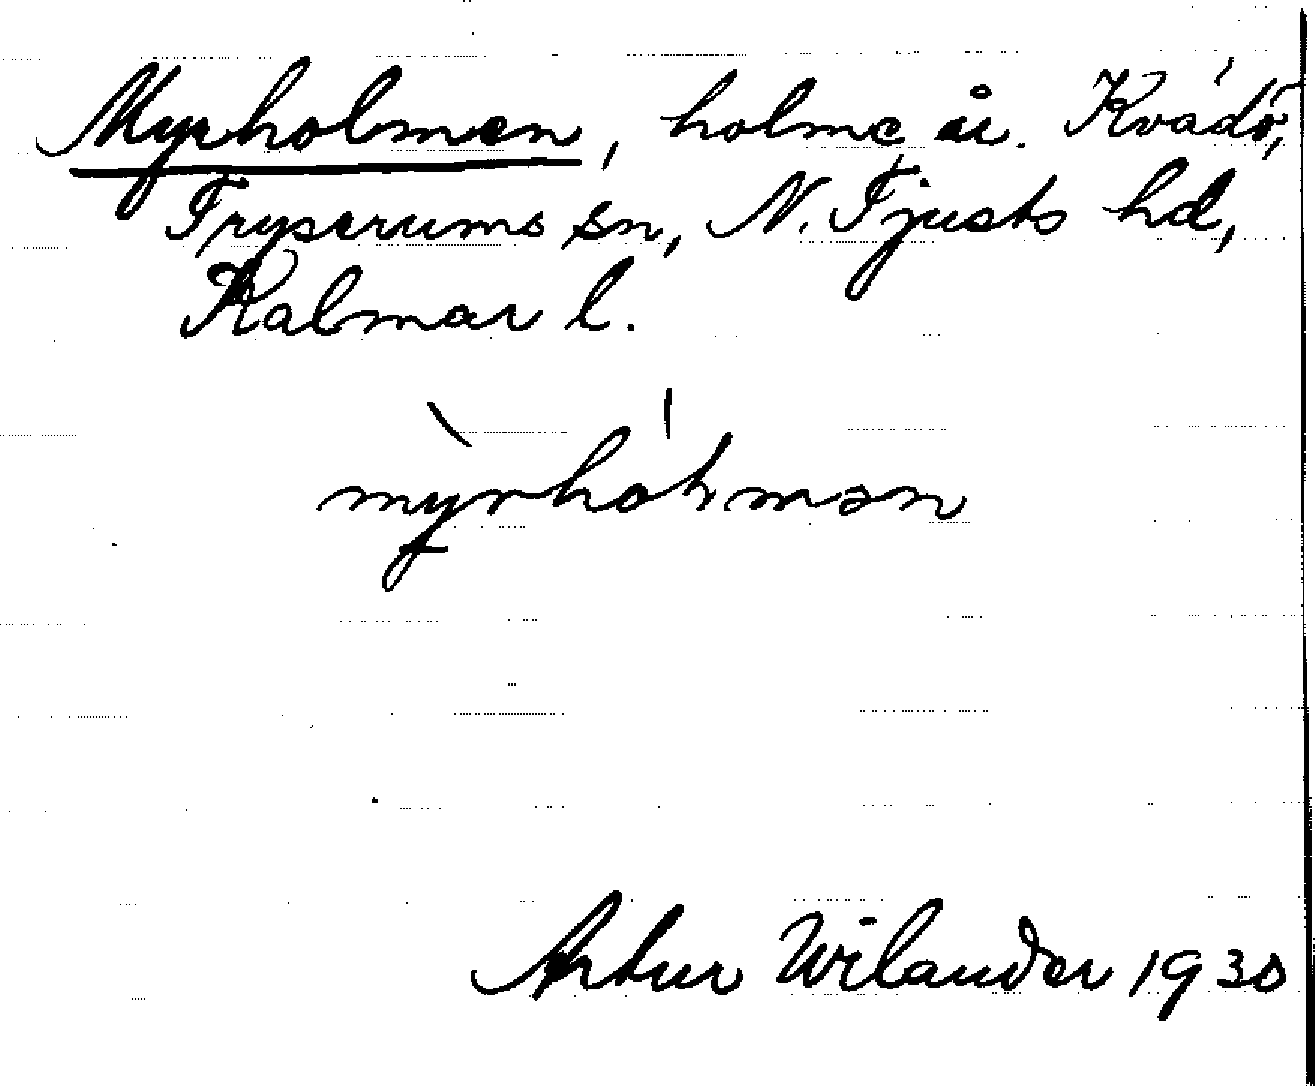 Myrholmen, holme åi. Kvädö,
Tryserums sn, N. Tjusts hd,
Kalmar l.
myrhólmən
Artur Wilander 1930